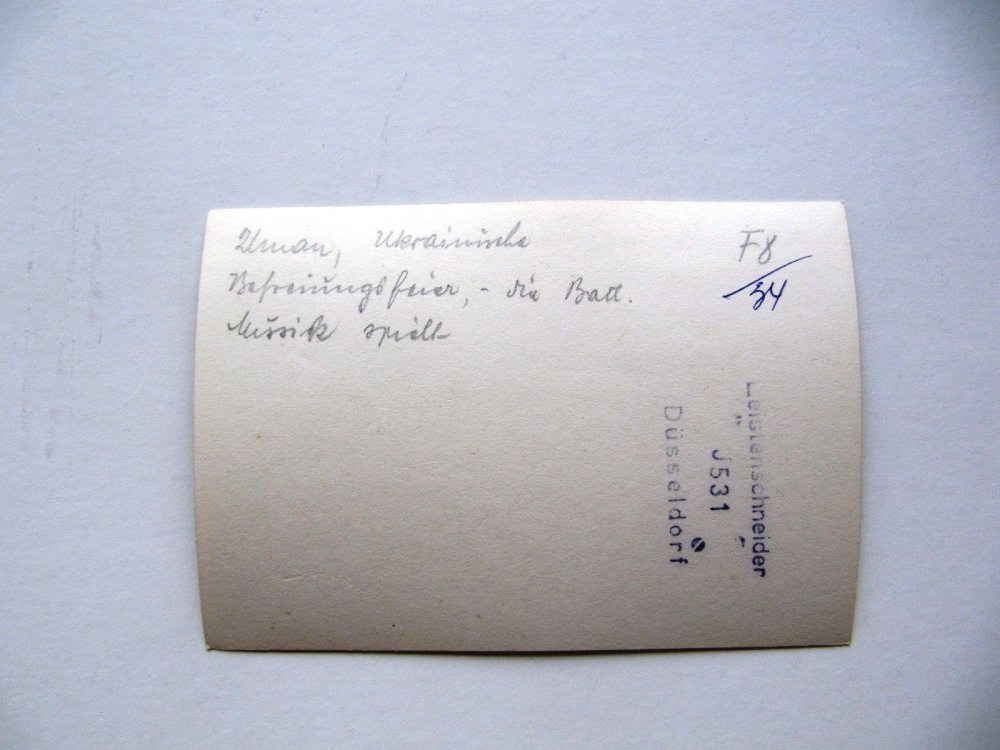 Uman, Ukrainische
Befreiungsfeier, - die Batl.
Musik spielt
F8
/34
Leistenschneider
J531
Düsseldorf